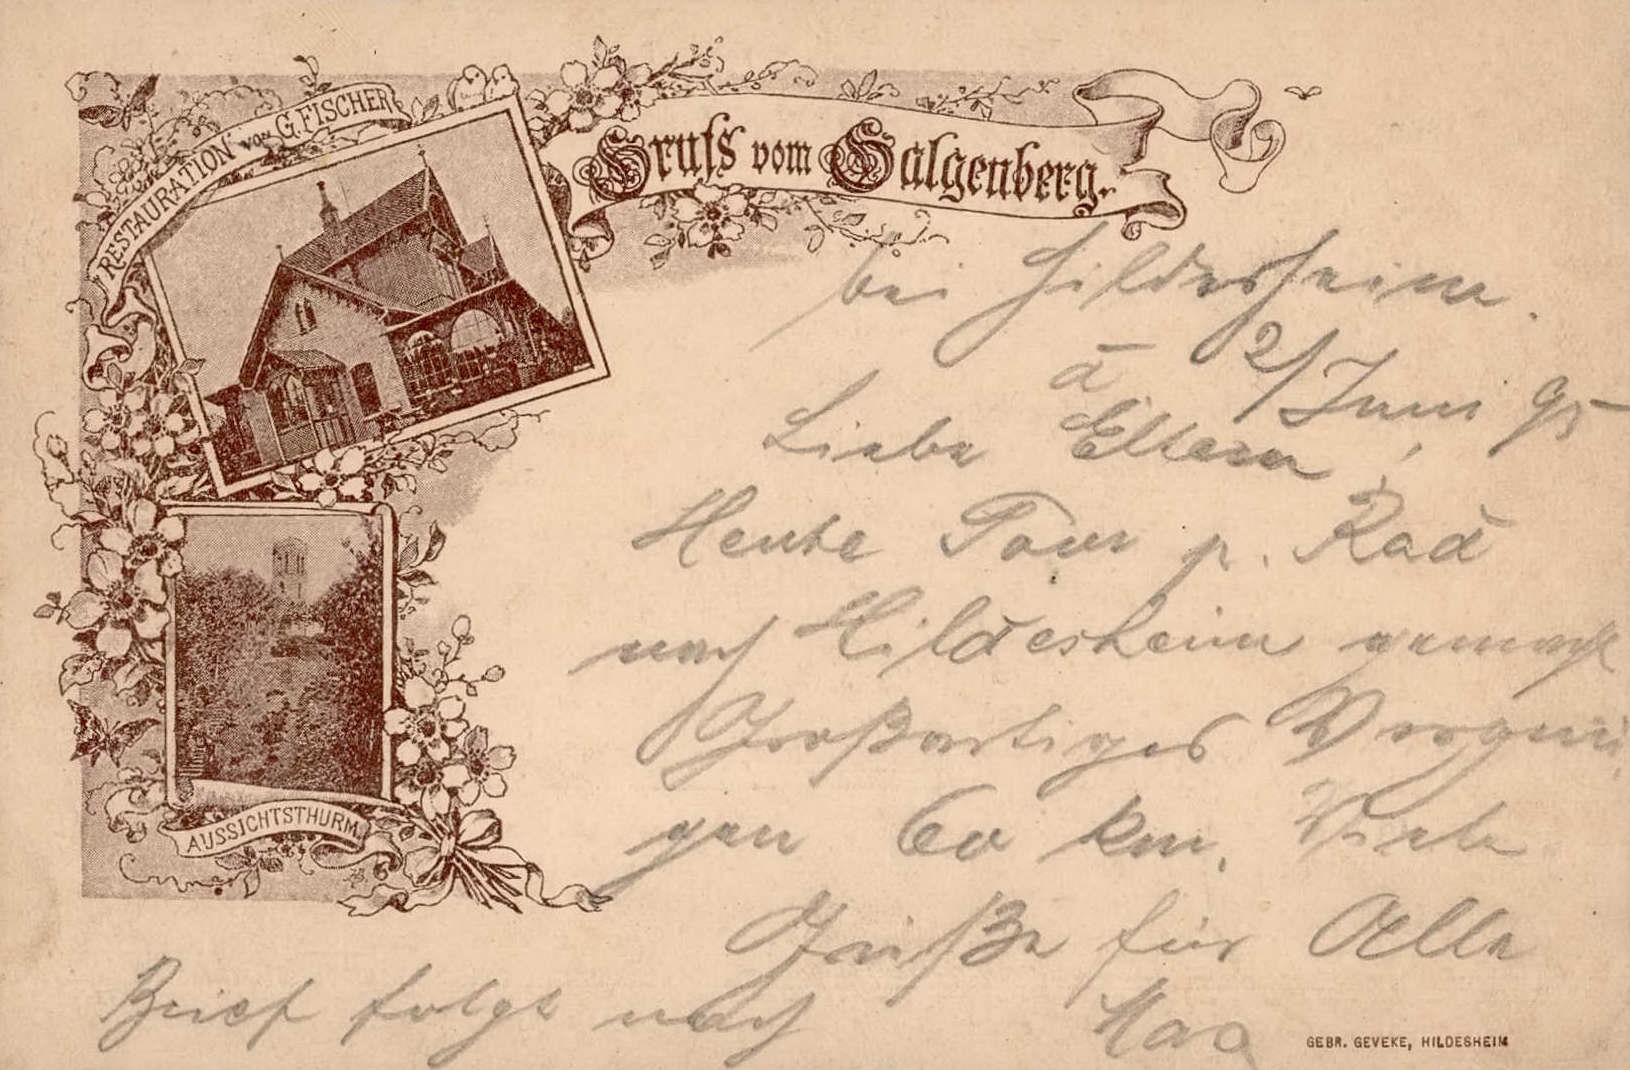 RESTAURATION von G. FISCHER
Gruss vom Galgenberg.
bei Hildesheim.
2/Juni 95
Liebe Eltern!
Heute Tour p. Rad
nach Hildesheim gemacht
Großartiges Vergnü
gen 60 km. Viele
Grüße für Alle
Brief folgt nach
AUSSICHTSTHURM.
GEBR. GEVEKE, HILDESHEIM